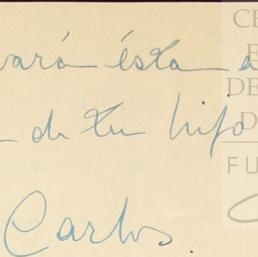 vará ésta a
de tu hijo
Carlos
CE
E
DE
D
FU